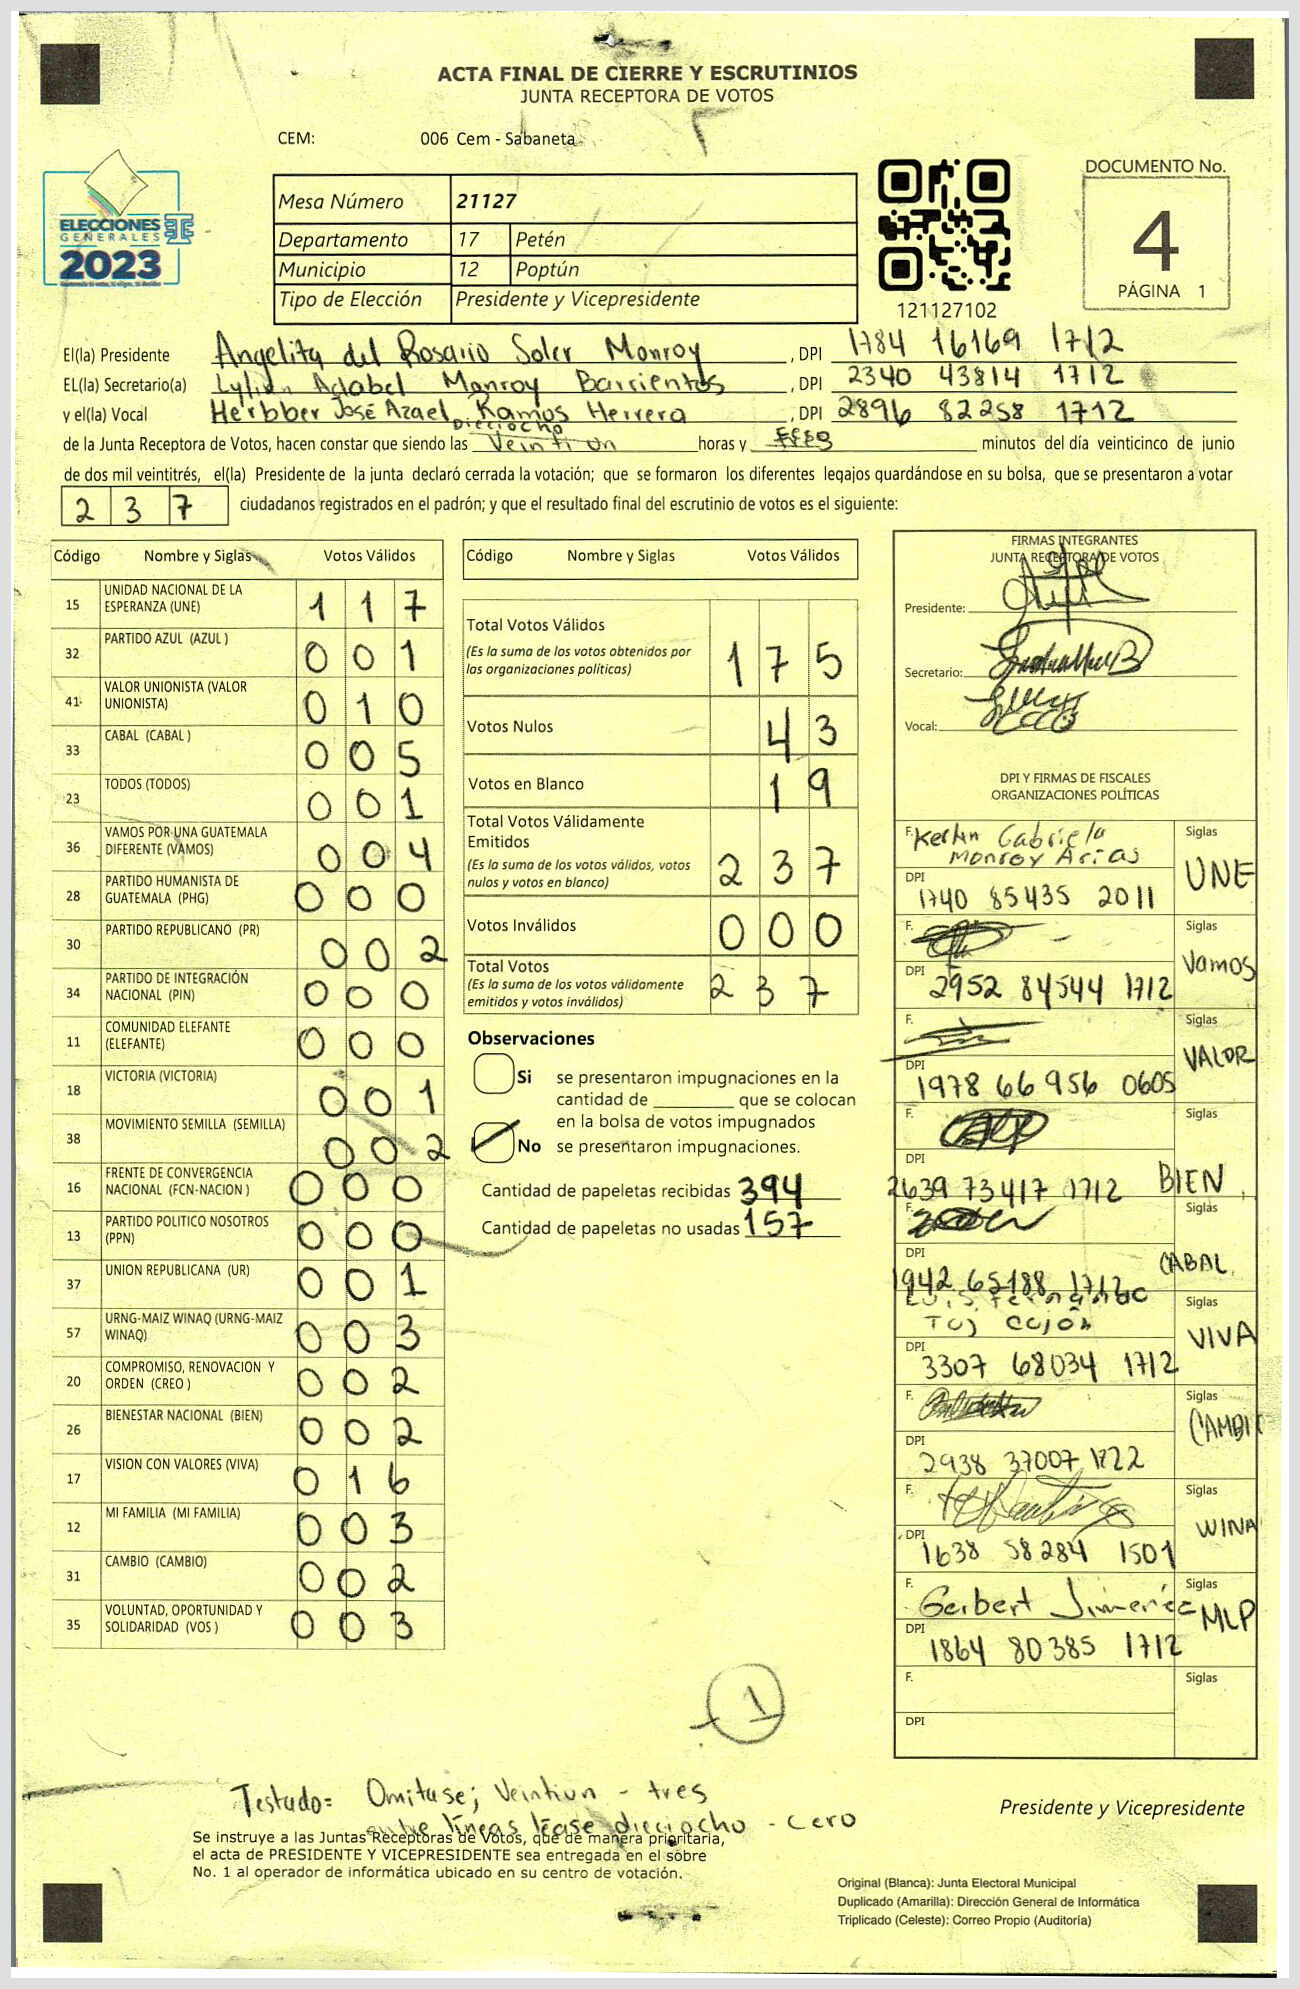 ACTA FINAL DE CIERRE Y ESCRUTINIOS
JUNTA RECEPTORA DE VOTOS
CEM: 006 Cem - Sabaneta
ELECCIONES
GENERALES
2023
Mesa Número 21127
Departamento 17 Petén
Municipio 12 Poptún
Tipo de Elección Presidente y Vicepresidente
121127102
DOCUMENTO No.
4
PÁGINA 1
El(la) Presidente Angelita del Rosario Soler Monroy, DPI 1784 16169 1712
EL(la) Secretario(a) Lylian Adabel Monroy Barrientos, DPI 2340 43814 1712
y el(la) Vocal Herbber José Azael Ramos Herrera, DPI 2896 82258 1712
Dieciocho
de la Junta Receptora de Votos, hacen constar que siendo las Veintiun horas y minutos del día veinticinco de junio
de dos mil veintitrés, el(la) Presidente de la junta declaró cerrada la votación; que se formaron los diferentes legajos guardándose en su bolsa, que se presentaron a votar
237 ciudadanos registrados en el padrón; y que el resultado final del escrutinio de votos es el siguiente:
Código Nombre y Siglas Votos Válidos
15 UNIDAD NACIONAL DE LA ESPERANZA (UNE) 1 1 7
32 PARTIDO AZUL (AZUL ) 0 0 1
41 VALOR UNIONISTA (VALOR UNIONISTA) 0 1 0
33 CABAL (CABAL ) 0 0 5
23 TODOS (TODOS) 0 0 1
36 VAMOS POR UNA GUATEMALA DIFERENTE (VAMOS) 0 0 4
28 PARTIDO HUMANISTA DE GUATEMALA (PHG) 0 0 0
30 PARTIDO REPUBLICANO (PR) 0 0 2
34 PARTIDO DE INTEGRACIÓN NACIONAL (PIN) 0 0 0
11 COMUNIDAD ELEFANTE (ELEFANTE) 0 0 0
18 VICTORIA (VICTORIA) 0 0 1
38 MOVIMIENTO SEMILLA (SEMILLA) 0 0 2
16 FRENTE DE CONVERGENCIA NACIONAL (FCN-NACION ) 0 0 0
13 PARTIDO POLITICO NOSOTROS (PPN) 0 0 0
37 UNION REPUBLICANA (UR) 0 0 1
57 URNG-MAIZ WINAQ (URNG-MAIZ WINAQ) 0 0 3
20 COMPROMISO, RENOVACION Y ORDEN (CREO ) 0 0 2
26 BIENESTAR NACIONAL (BIEN) 0 0 2
17 VISION CON VALORES (VIVA) 0 1 6
12 MI FAMILIA (MI FAMILIA) 0 0 3
31 CAMBIO (CAMBIO) 0 0 2
35 VOLUNTAD, OPORTUNIDAD Y SOLIDARIDAD (VOS ) 0 0 3
Código Nombre y Siglas Votos Válidos
Total Votos Válidos
(Es la suma de los votos obtenidos por
las organizaciones políticas) 1 7 5
Votos Nulos 4 3
Votos en Blanco 1 9
Total Votos Válidamente
Emitidos
(Es la suma de los votos válidos, votos
nulos y votos en blanco) 2 3 7
Votos Inválidos 0 0 0
Total Votos
(Es la suma de los votos válidamente
emitidos y votos inválidos) 2 3 7
Observaciones
Si se presentaron impugnaciones en la
cantidad de ________ que se colocan
en la bolsa de votos impugnados
No se presentaron impugnaciones.
Cantidad de papeletas recibidas 394
Cantidad de papeletas no usadas 157
FIRMAS INTEGRANTES
JUNTA RECEPTORA DE VOTOS
Presidente:
Secretario:
Vocal:
DPI Y FIRMAS DE FISCALES
ORGANIZACIONES POLÍTICAS
F. Kerlin Gabriela Monroy Arias Siglas UNE
DPI 1740 85435 2011
F. Siglas Vamos
DPI 2952 84544 1712
F. Siglas VALOR
DPI 1978 66956 0605
F. Siglas BIEN
DPI 2639 73417 1712
F. Siglas CABAL
DPI 1942 65188 1712
Luis Fernando Tuj Cajón Siglas VIVA
DPI 3307 68034 1712
F. Siglas CAMBIO
DPI 2938 37007 1722
F. Siglas WINA
DPI 1638 58284 1501
F. Gerbert Jimenez Siglas MLP
DPI 1864 80385 1712
F. Siglas
DPI
1
Testado= Omitase; Veintiun - tres
entre líneas léase dieciocho - cero
Se instruye a las Juntas Receptoras de Votos, que de manera prioritaria,
el acta de PRESIDENTE Y VICEPRESIDENTE sea entregada en el sobre
No. 1 al operador de informática ubicado en su centro de votación.
Presidente y Vicepresidente
Original (Blanca): Junta Electoral Municipal
Duplicado (Amarilla): Dirección General de Informática
Triplicado (Celeste): Correo Propio (Auditoría)